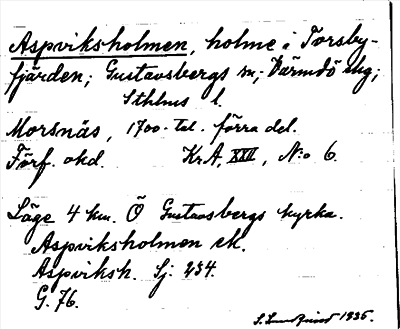 Aspviksholmen, holme i Torsby-
fjärden; Gustavsbergs sn; Värmdö skg;
Sthlms l.
Morsnäs, 1700-tal. förra del.
Förf. okd. Kr.A, XXII, N:o 6.
Läge 4 km. Ö Gustavsbergs kyrka.
Aspviksholmen ek.
Aspviksh. Sj. 234.
G. 76.
1935.